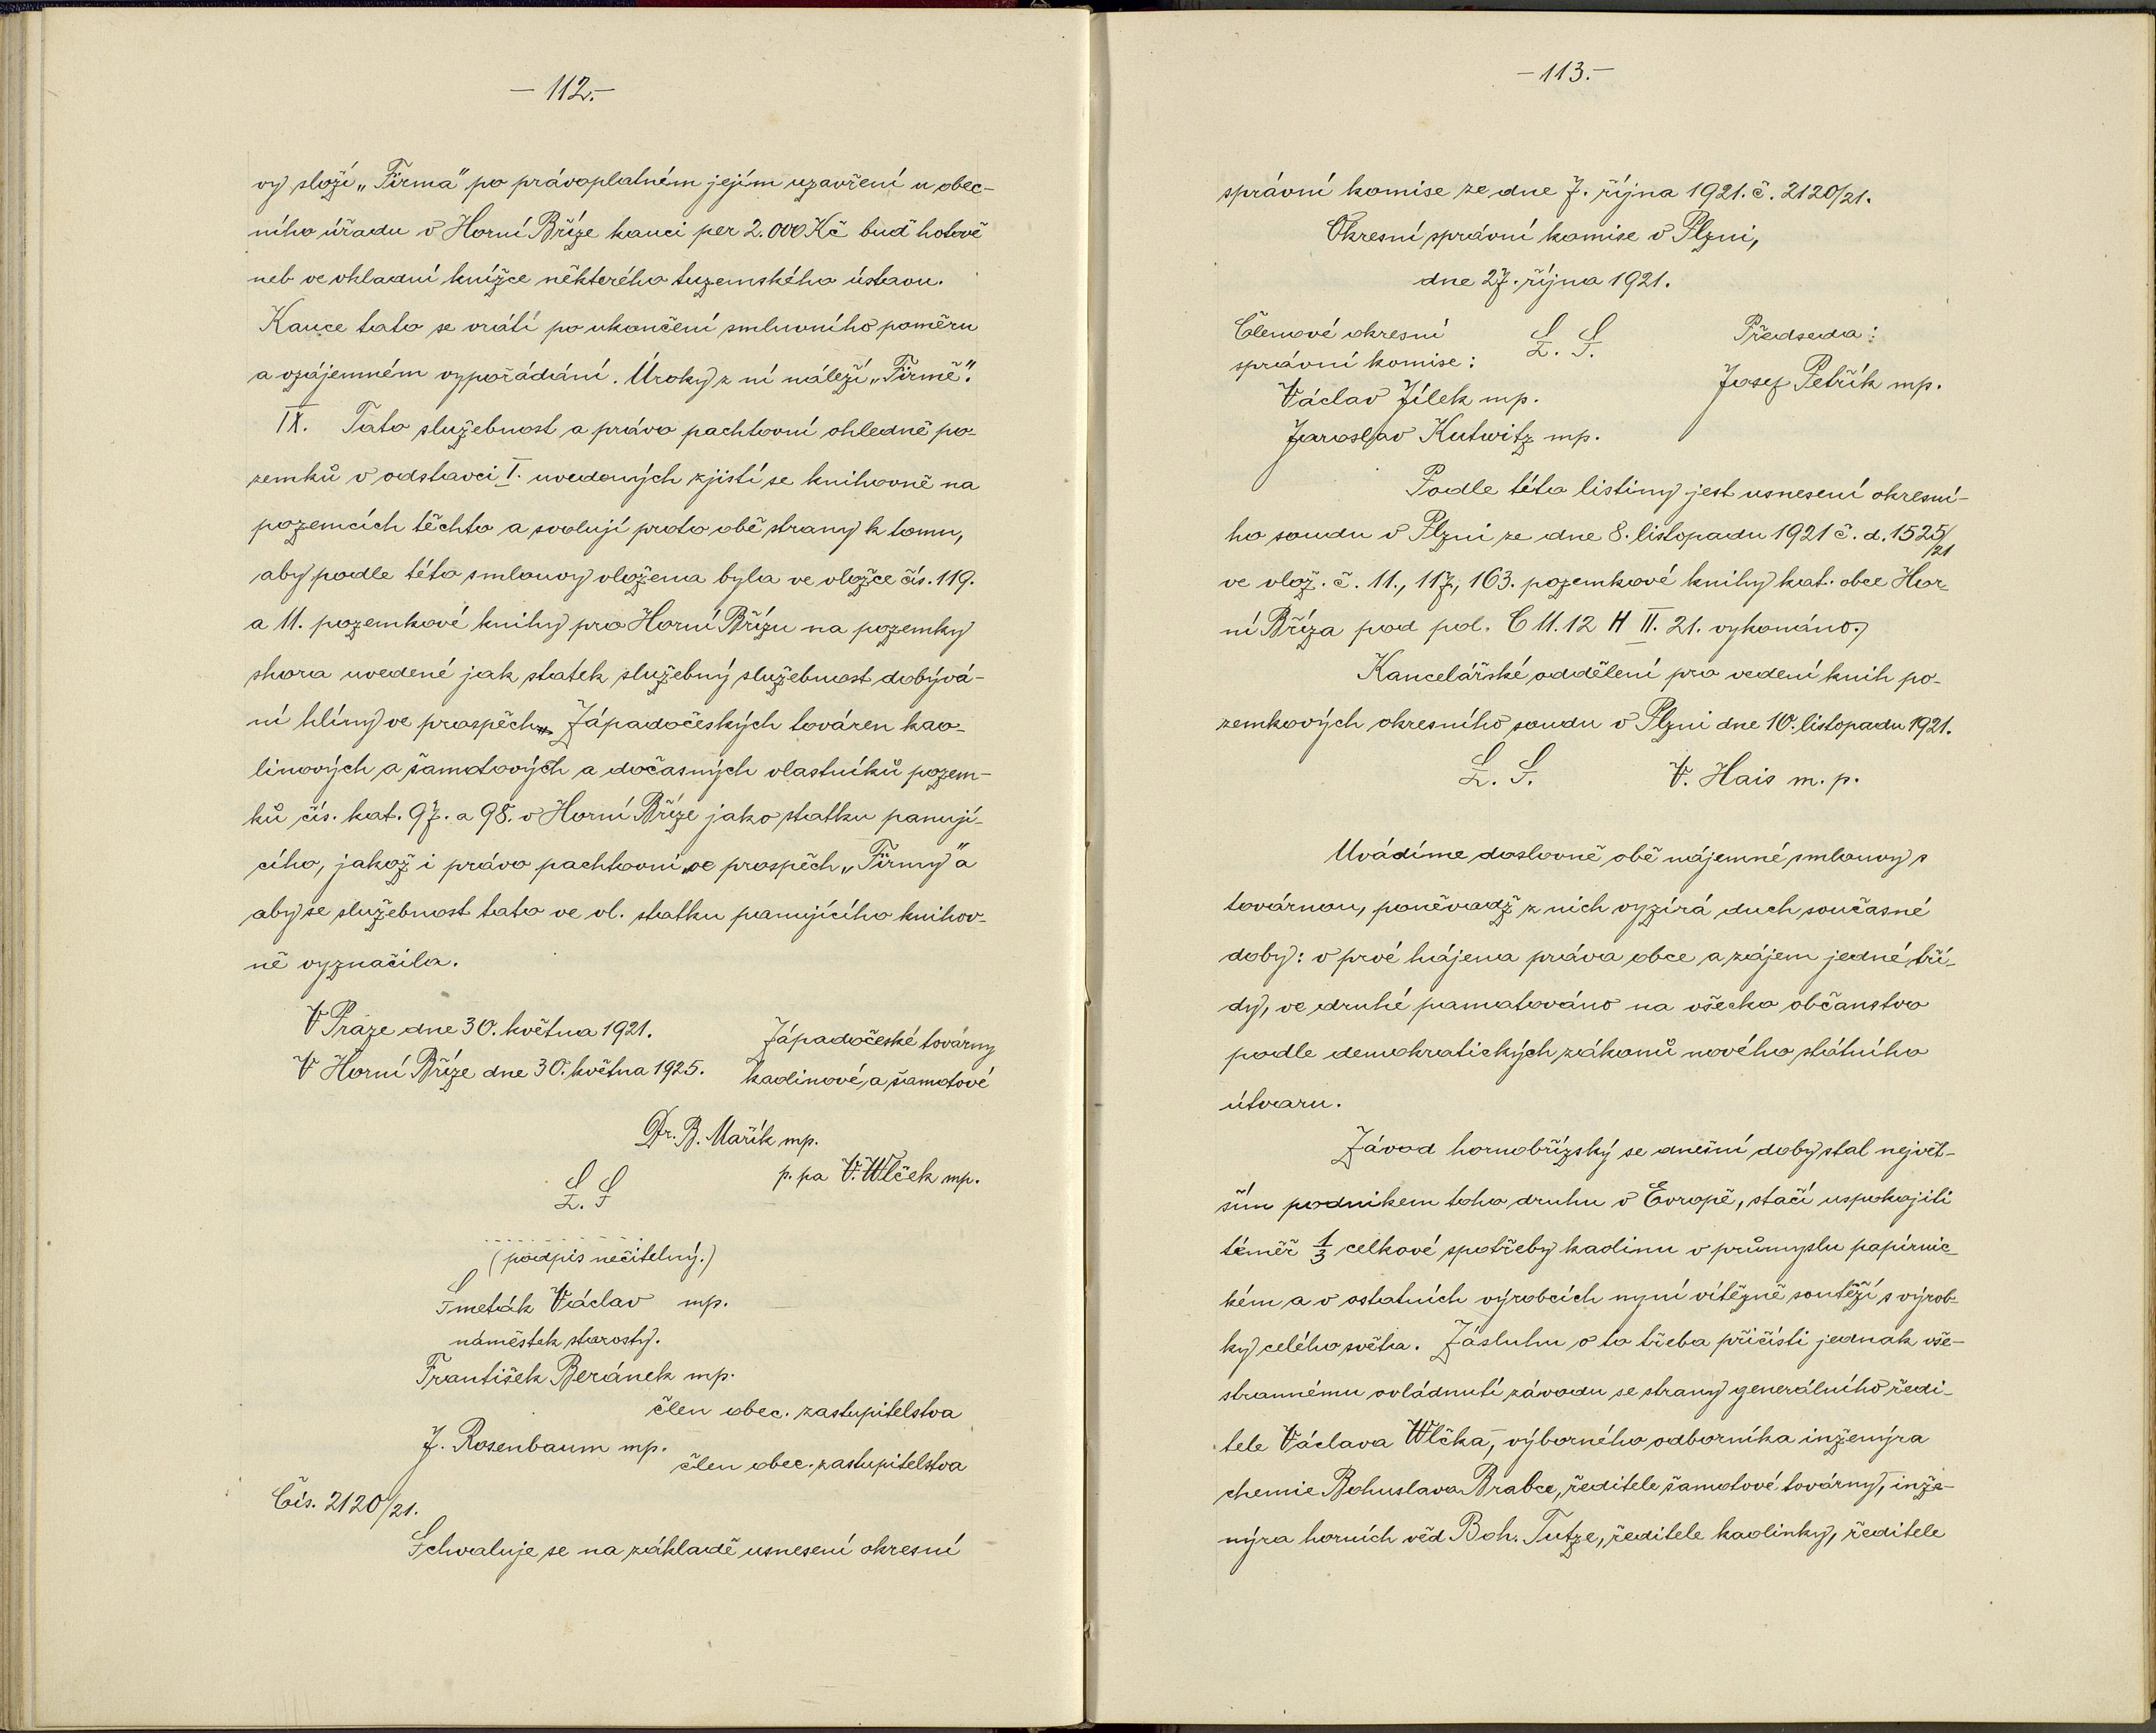 — 112. —
vy složí „Firma" po právoplatném jejím uzavření u obec-
ního úřadu v Horní Bříze kauci per 2.000 Kč buď hotově
neb ve vkladní knížce některého tuzemského ústavu.
Kauce tato se vrátí po ukončení smluvního poměru
a vzájemném vypořádání. Úroky z ní náleží „Firmě".
IX. Tato služebnost a právo pachtovní ohledně po-
zemků v odstavci I. uvedených zjistí se knihovně na
pozemcích těchto a svolují proto obě strany k tomu,
aby podle této smlouvy vložena byla ve vložce čís. 119.
a 11. pozemkové knihy pro Horní Břízu na pozemky
shora uvedené jak statek služebný služebnost dobývá-
ní hlíny ve prospěch Západočeských továren kao-
linových a šamotových a dočasných vlastníků pozem-
ků čís. kat. 97. a 98. v Horní Bříze jako statku panují-
cího, jakož i právo pachtovní „ve prospěch „Firmy" a
aby se služebnost tato ve vl. statku panujícího knihov-
ně vyznačila.
V Praze dne 30. května 1921.
V Horní Bříze dne 30. května 1925.
Západočeské továrny
kaolinové a šamotové
Dr. B. Mařík mp.
p. pa V. Wlček mp.
L. S
(podpis nečitelný.)
Smeták Václav mp.
náměstek starosty.
František Beránek mp.
člen obec. zastupitelstva
J. Rosenbaum mp.
člen obec. zastupitelstva
Čís. 2120/21.
Schvaluje se na základě usnesení okresní
— 113. —
správní komise ze dne 7. října 1921. č. 2120/21.
Okresní správní komise v Plzni,
dne 27. října 1921.
Členové okresní
správní komise:
L. S.
Předseda:
Josef Petřík mp.
Václav Jílek mp.
Jaroslav Kutwitz mp.
Podle této listiny jest usnesení okresní-
ho soudu v Plzni ze dne 8. listopadu 1921 č. d. 1525/21
ve vlož. č. 11., 117, 163. pozemkové knihy kat. obce Hor-
ní Bříza pod pol. C 11. 12 H II. 21. vykonáno.
Kancelářské oddělení pro vedení knih po-
zemkových okresního soudu v Plzni dne 10. listopadu 1921.
L. S.
V. Hais m. p.
Uvádíme doslovně obě nájemné smlouvy s
továrnou, poněvadž z nich vyzírá duch současné
doby: v prvé hájena práva obce a zájem jedné tří-
dy, ve druhé pamatováno na všecko občanstvo
podle demokratických zákonů nového státního
útvaru.
Závod hornobřízský se dnešní doby stal největ-
ším podnikem toho druhu v Evropě, stačí uspokojiti
téměř 1/3 celkové spotřeby kaolinu v průmyslu papírnic-
kém a v ostatních výrobcích nyní vítězně soutěží s výrob-
ky celého světa. Zásluhu o to třeba přičísti jednak vše-
strannému ovládnutí závodu se strany generálního ředi-
tele Václava Wlčka, výborného odborníka inženýra
chemie Bohuslava Brabce, ředitele šamotové továrny, inže-
nýra horních věd Boh. Tutze, ředitele kaolinky, ředitele